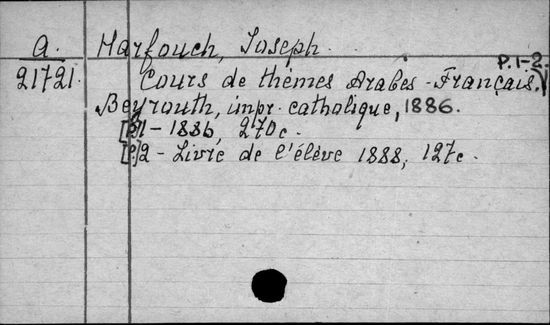 A. Harfouch, Joseph.
21721. Cours de thèmes Arabes-Français, P.1-2.
Beyrouth, impr. catholique, 1886.
[P.]1 - 1886, 270c.
[P.]2 - Livre de l'élève 1888, 127c.